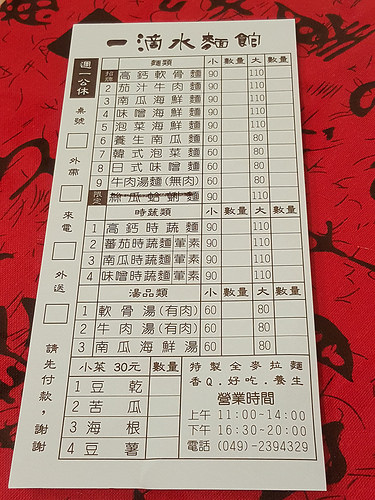 一滴水麵館
週一公休
桌號
外帶
來電
外送
請先付款，謝謝
麵類 小 數量 大 數量
招牌
1 高鈣軟骨麵 90 110
2 茄汁牛肉麵 90 110
3 南瓜海鮮麵 90 110
4 味噌海鮮麵 90 110
5 泡菜海鮮麵 90 110
6 養生南瓜麵 60 80
7 韓式泡菜麵 60 80
8 日式味噌麵 60 80
9 牛肉湯麵(無肉) 60 80
限定 絲瓜蛤蜊麵 90 110
時蔬類 小 數量 大 數量
1 高鈣時蔬麵 90 110
2 蕃茄時蔬麵葷素 90 110
3 南瓜時蔬麵葷素 90 110
4 味噌時蔬麵葷素 90 110
湯品類 小 數量 大 數量
1 軟骨湯(有肉) 60 80
2 牛肉湯(有肉) 60 80
3 南瓜海鮮湯 60 80
小菜 30元 數量
1 豆乾
2 苦瓜
3 海根
4 豆薯
特製全麥拉麵
香Q.好吃.養生
營業時間
上午 11:00-14:00
下午 16:30-20:00
電話 (049)-2394329